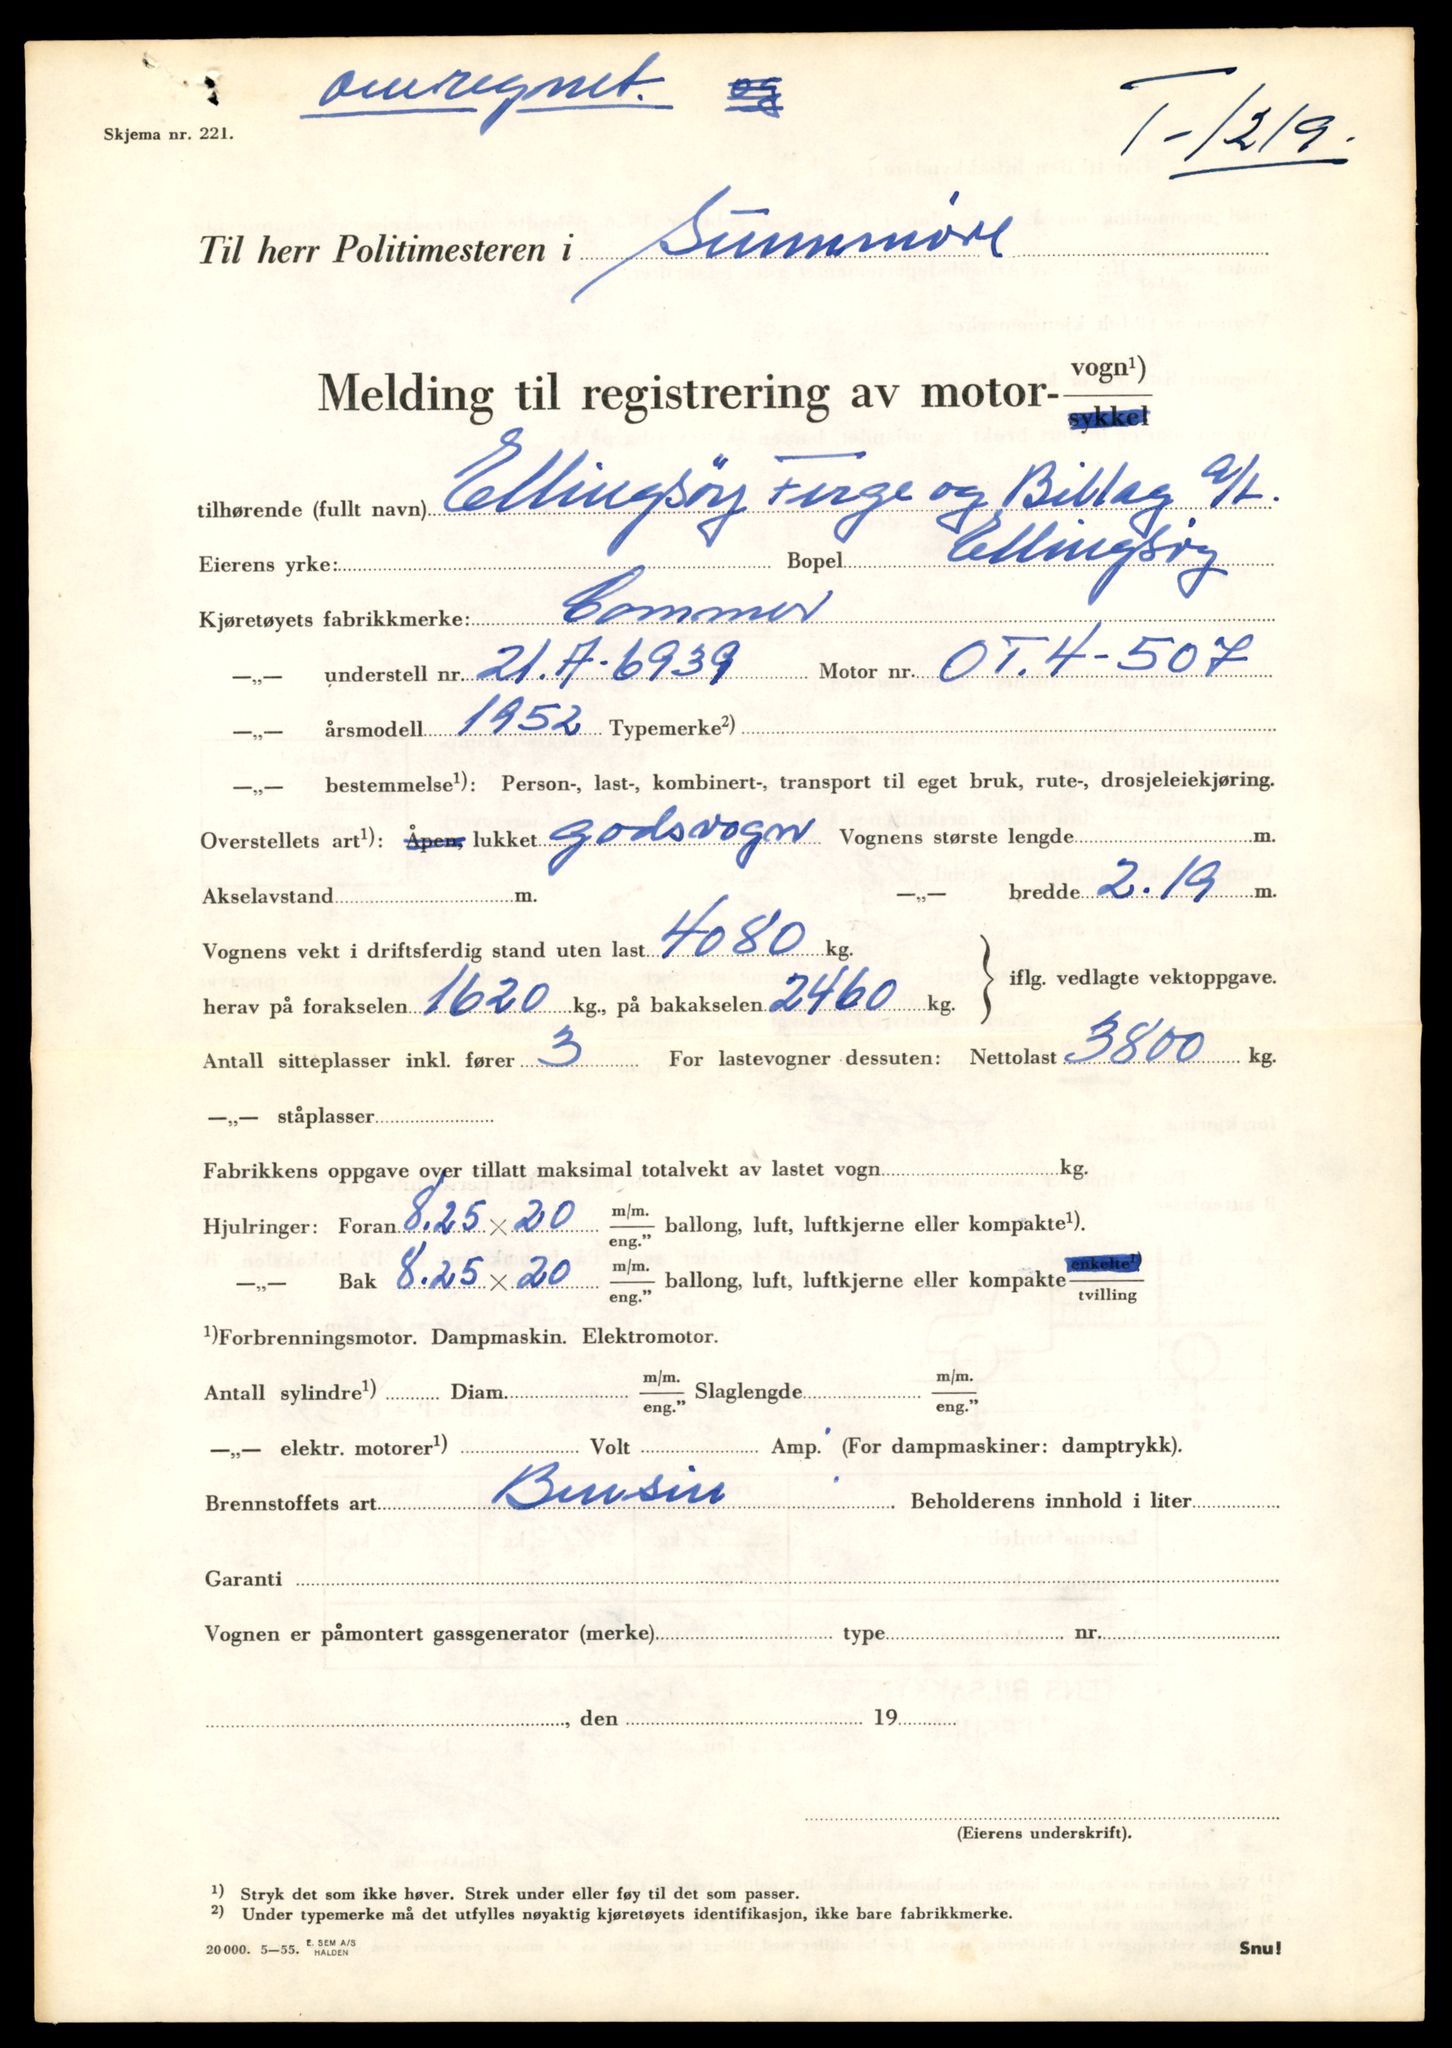 omregnet. og
T-1219.
Skjema nr. 221.
Til herr Politimesteren i Sunnmøre
Melding til registrering av motor- vogn¹) sykkel
tilhørende (fullt navn) Ellingsöy Ferge og Billag a/L.
Eierens yrke: Bopel Ellingsöy
Kjøretøyets fabrikkmerke: Commer
—„— understell nr. 21.A-6939 Motor nr. OT.4-507
—„— årsmodell 1952 Typemerke²)
—„— bestemmelse¹): Person-, last-, kombinert-, transport til eget bruk, rute-, drosjeleiekjøring.
Overstellets art¹): Åpen, lukket godsvogn Vognens største lengde m.
Akselavstand m. —„— bredde 2.19 m.
Vognens vekt i driftsferdig stand uten last 4080 kg.
herav på forakselen 1620 kg., på bakakselen 2460 kg. } iflg. vedlagte vektoppgave.
Antall sitteplasser inkl. fører 3 For lastevogner dessuten: Nettolast 3800 kg.
—„— ståplasser
Fabrikkens oppgave over tillatt maksimal totalvekt av lastet vogn kg.
Hjulringer: Foran 8.25 × 20 m/m. eng.” ballong, luft, luftkjerne eller kompakte¹).
—„— Bak 8.25 × 20 m/m. eng.” ballong, luft, luftkjerne eller kompakte enkelte¹) tvilling
¹)Forbrenningsmotor. Dampmaskin. Elektromotor.
Antall sylindre¹) Diam. m/m. eng.” Slaglengde m/m. eng.”
—„— elektr. motorer¹) Volt Amp. (For dampmaskiner: damptrykk).
Brennstoffets art Bensin. Beholderens innhold i liter
Garanti
Vognen er påmontert gassgenerator (merke) type nr.
, den 19
(Eierens underskrift).
¹) Stryk det som ikke høver. Strek under eller føy til det som passer.
²) Under typemerke må det utfylles nøyaktig kjøretøyets identifikasjon, ikke bare fabrikkmerke.
20000. 5—55. E. SEM A/S HALDEN Snu!